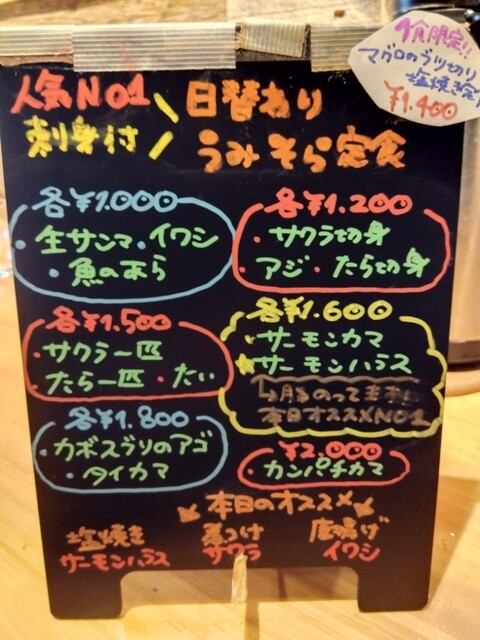 9食限定!!
マグロのブツ切り
塩焼き定
¥1.400
人気NO1
刺身付
日替わり
うみそら定食
各¥1.000
・生サンマ・イワシ
・魚のあら
各¥1.200
・サクラ切身
・アジ・たら切身
各¥1.500
・サクラ一匹
・たら一匹・たい
各¥1.600
・サーモンカマ
★サーモンハラス
脂のってます
本日オススメNO1
各¥1.800
・カボスブリのアゴ
・タイカマ
¥2.000
・カンパチカマ
本日のオススメ
塩焼き
サーモンハラス
煮つけ
サワラ
唐揚げ
イワシ